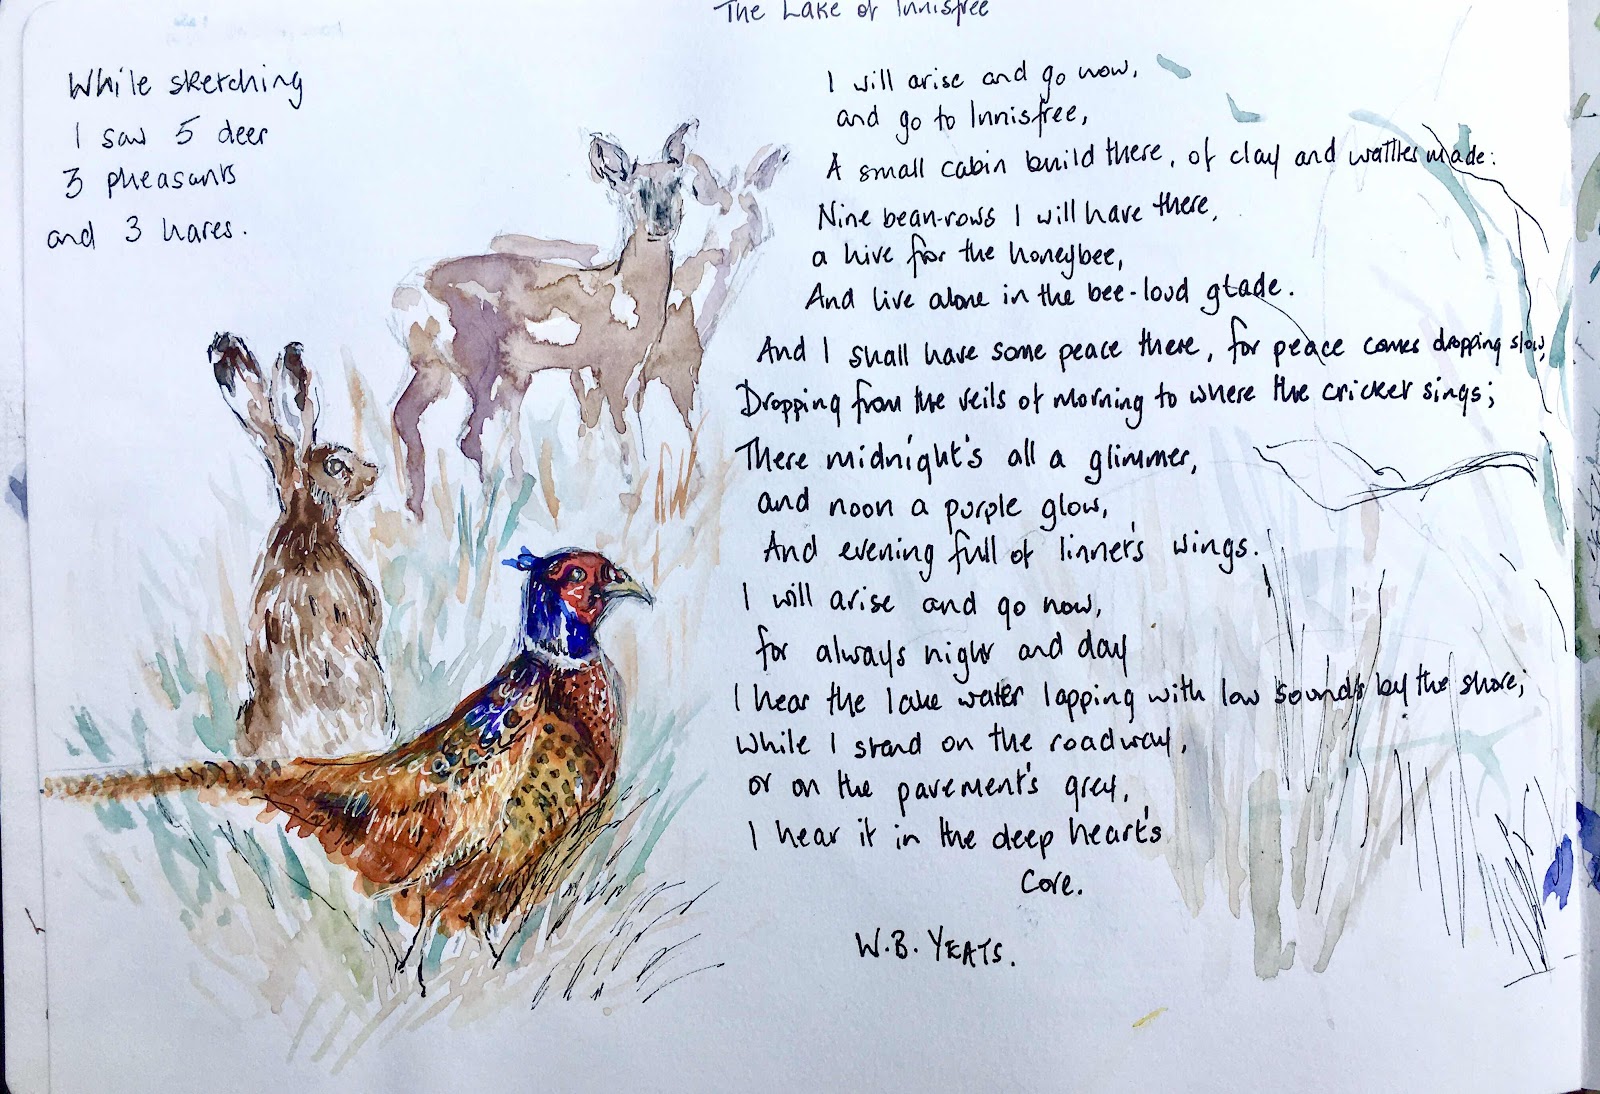 The Lake of Innisfree
While sketching
I saw 5 deer
3 pheasants
and 3 hares.
I will arise and go now,
and go to Innisfree,
A small cabin build there, of clay and wattles made:
Nine bean-rows I will have there,
a hive for the honeybee,
And live alone in the bee-loud glade.
And I shall have some peace there, for peace comes dropping slow,
Dropping from the veils of morning to where the cricket sings;
There midnight's all a glimmer,
and noon a purple glow,
And evening full of linnet's wings.
I will arise and go now,
for always night and day
I hear the lake water lapping with low sounds by the shore;
While I stand on the roadway,
or on the pavement's grey,
I hear it in the deep heart's
Core.
W.B. YEATS.